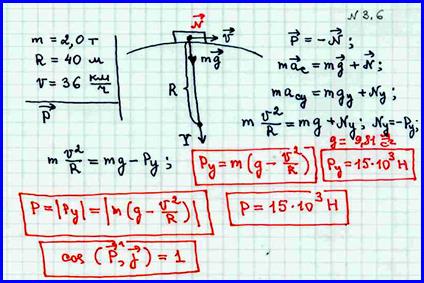 N 3.6
m = 2,0 т
R = 40 м
v = 36 км/ч
P⃗
N⃗
v⃗
mg⃗
R
Y
P⃗ = -N⃗;
ma⃗c = mg⃗ + N⃗;
macy = mgy + Ny;
m v²/R = mg + Ny; Ny = -Py;
m v²/R = mg - Py;
Py = m(g - v²/R)
g = 9,81 м/с²
Py = 15·10³ Н
P = |Py| = |m(g - v²/R)|
P = 15·10³ Н
cos (P⃗,^ j⃗) = 1